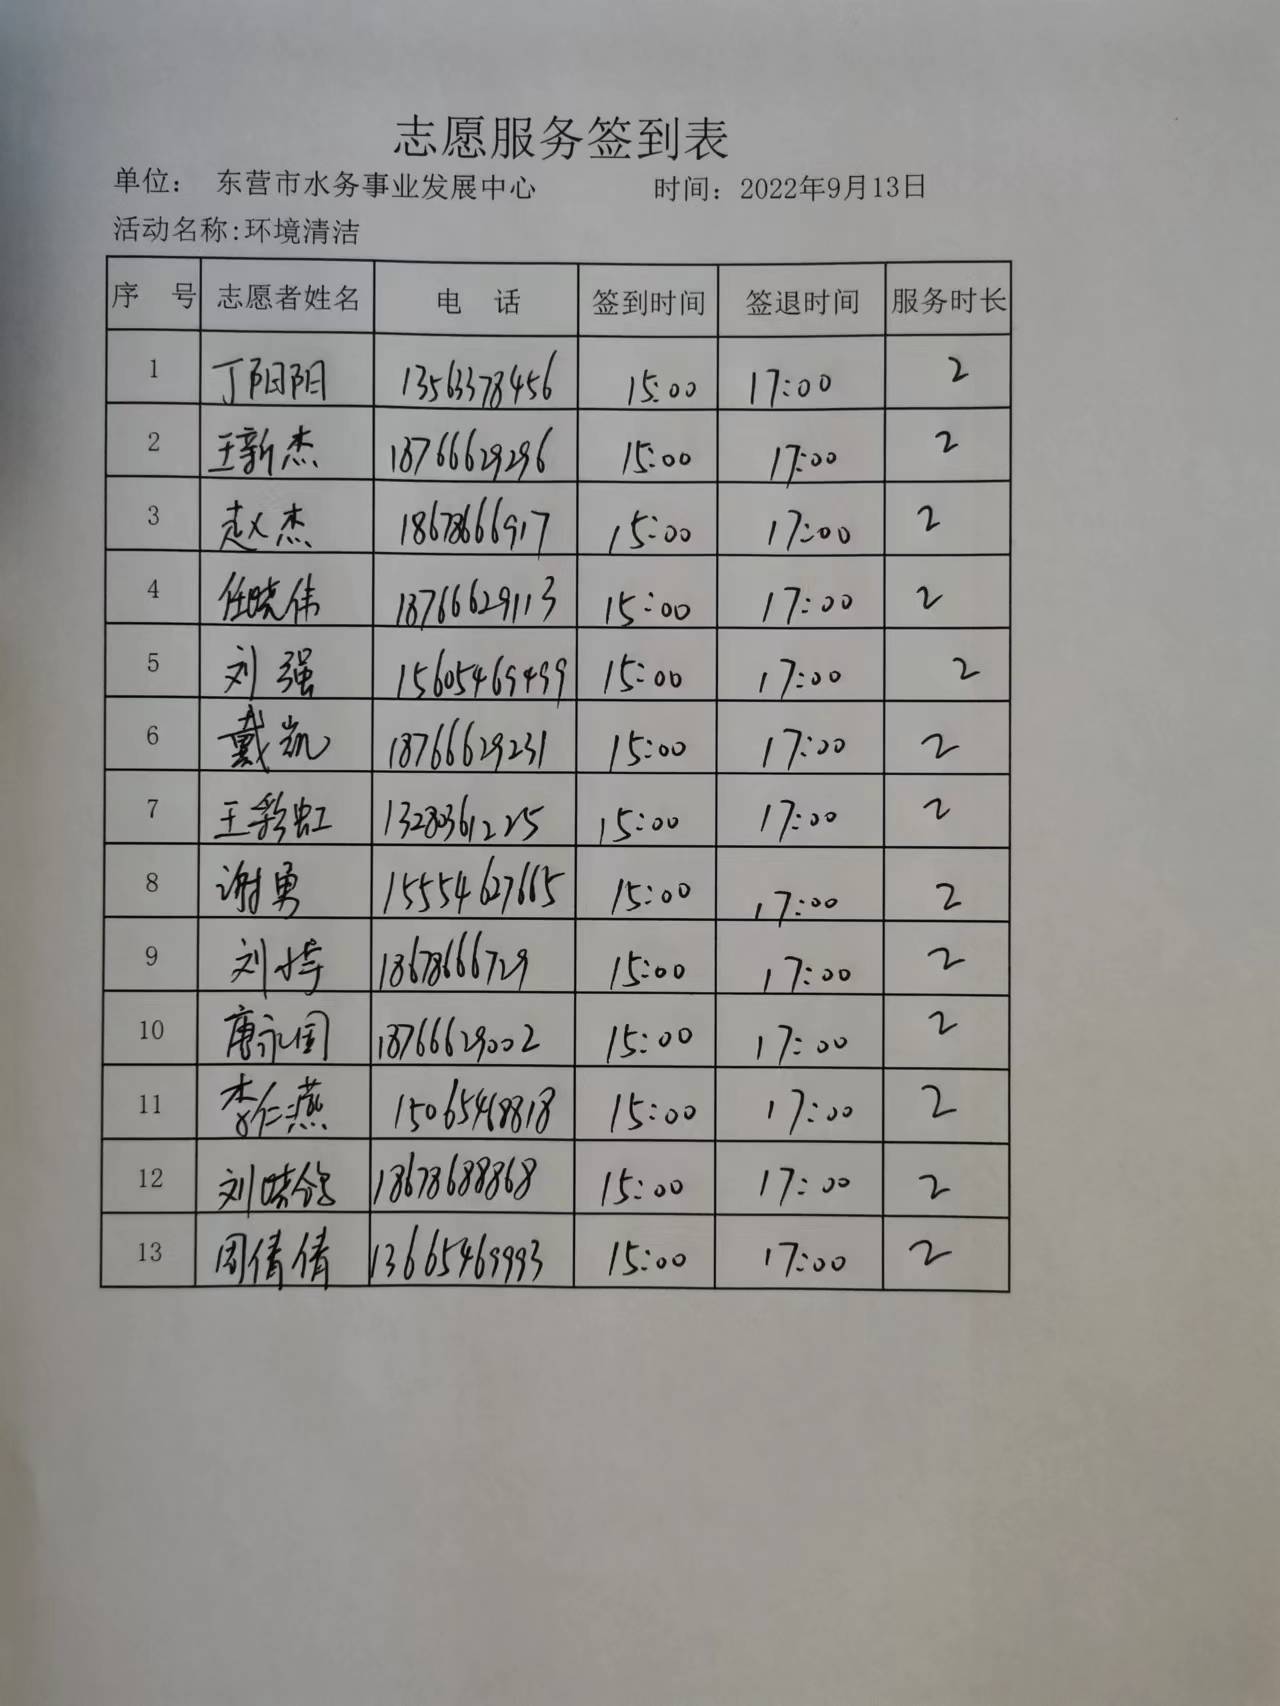 志愿服务签到表
单位： 东营市水务事业发展中心 时间：2022年9月13日
活动名称:环境清洁
序 号 志愿者姓名 电 话 签到时间 签退时间 服务时长
1 丁阳阳 13563378456 15:00 17:00 2
2 王新杰 18766629296 15:00 17:00 2
3 赵杰 18678666917 15:00 17:00 2
4 任晓伟 18766629113 15:00 17:00 2
5 刘强 15605469499 15:00 17:00 2
6 戴凯 18766629231 15:00 17:00 2
7 王彩虹 13280361225 15:00 17:00 2
8 谢勇 15554627665 15:00 17:00 2
9 刘 18678666729 15:00 17:00 2
10 唐永国 18766629002 15:00 17:00 2
11 李仁燕 15065468818 15:00 17:00 2
12 刘晓 18678688868 15:00 17:00 2
13 周倩倩 13665469993 15:00 17:00 2